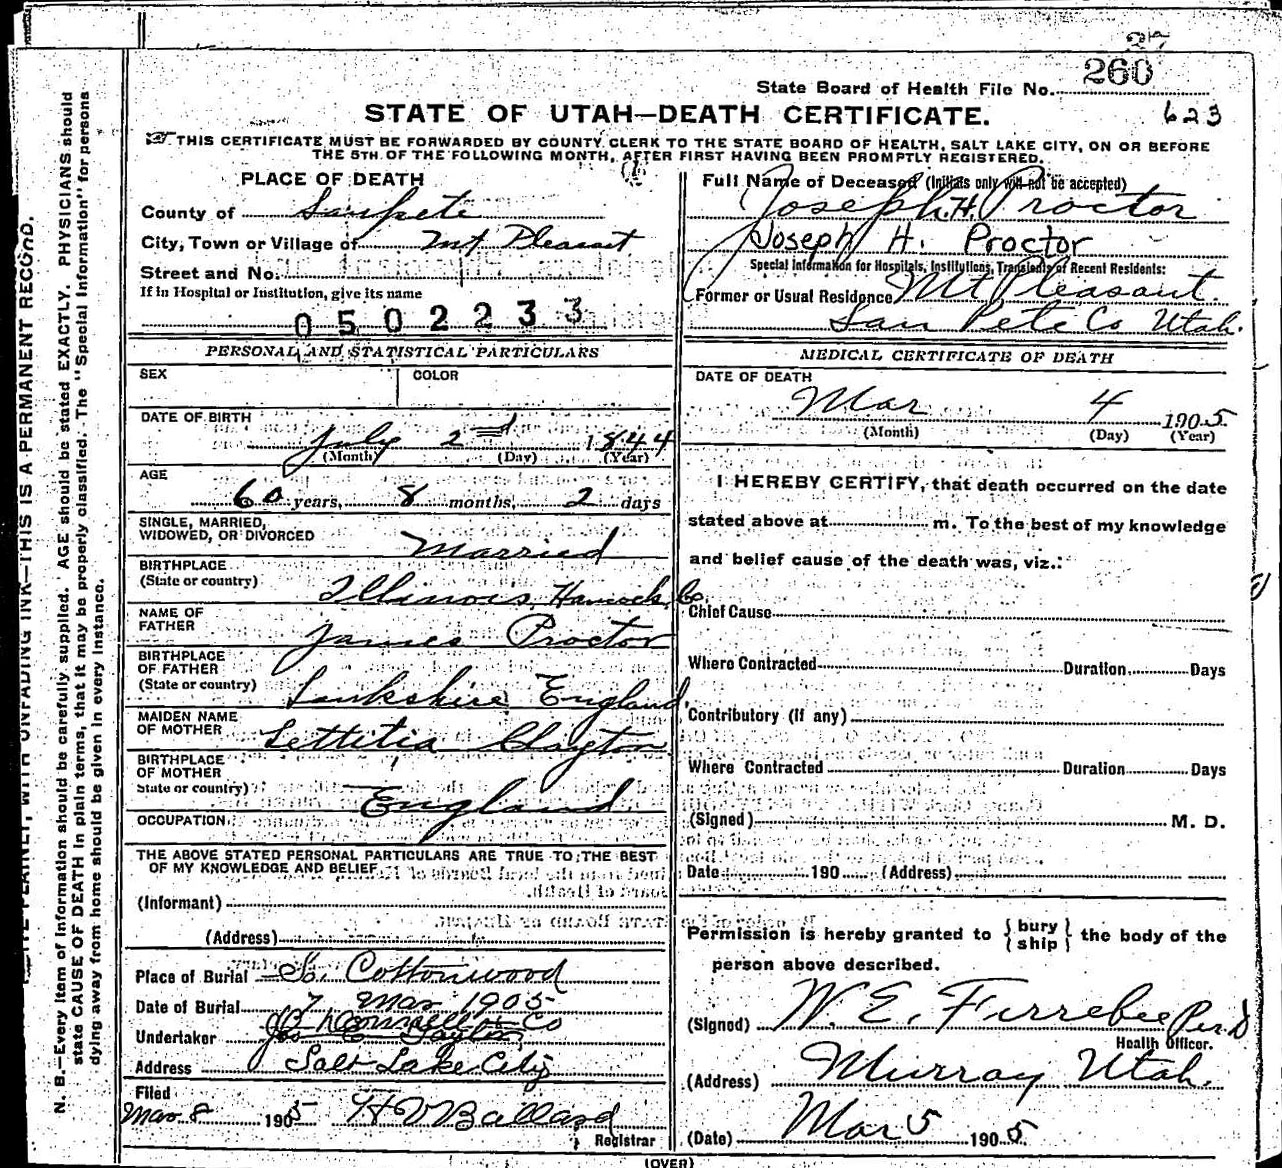 260
State Board of Health File No.
623
STATE OF UTAH—DEATH CERTIFICATE.
THIS CERTIFICATE MUST BE FORWARDED BY COUNTY CLERK TO THE STATE BOARD OF HEALTH, SALT LAKE CITY, ON OR BEFORE
THE 5TH OF THE FOLLOWING MONTH, AFTER FIRST HAVING BEEN PROMPTLY REGISTERED.
PLACE OF DEATH
County of Sanpete
City, Town or Village of Mt Pleasant
Street and No.
If in Hospital or Institution, give its name
0502233
Full Name of Deceased (Initials only will not be accepted)
Joseph H. Proctor
Joseph H. Proctor
Special Information for Hospitals, Institutions, Transients or Recent Residents:
Former or Usual Residence Mt Pleasant.
San Pete Co Utah.
PERSONAL AND STATISTICAL PARTICULARS
SEX
COLOR
DATE OF BIRTH
July 2nd 1844
(Month) (Day) (Year)
AGE
60 years, 8 months, 2 days
SINGLE, MARRIED,
WIDOWED, OR DIVORCED Married
BIRTHPLACE
(State or country) Illinois Hancock Co
NAME OF
FATHER James Proctor
BIRTHPLACE
OF FATHER
(State or country) Lankshire England
MAIDEN NAME
OF MOTHER Lettitia Clayton
BIRTHPLACE
OF MOTHER
State or country) England
OCCUPATION
THE ABOVE STATED PERSONAL PARTICULARS ARE TRUE TO THE BEST
OF MY KNOWLEDGE AND BELIEF
(Informant)
(Address)
Place of Burial So. Cottonwood
Date of Burial 7 Mar 1905
Undertaker
Address Salt Lake City
Filed
Mar 8 1905 H V Ballard
Registrar
MEDICAL CERTIFICATE OF DEATH
DATE OF DEATH
Mar 4 1905
(Month) (Day) (Year)
I HEREBY CERTIFY, that death occurred on the date
stated above at m. To the best of my knowledge
and belief cause of the death was, viz.:
Chief Cause
Where Contracted Duration Days
Contributory (If any)
Where Contracted Duration Days
(Signed) M. D.
Date 190 (Address)
Permission is hereby granted to {bury
ship} the body of the
person above described.
(Signed) W. E. Ferrebee Per. D
Health Officer.
(Address) Murray Utah.
(Date) Mar 5 1905.
(OVER)
N. B.—Every item of information should be carefully supplied. AGE should be stated EXACTLY. PHYSICIANS should
state CAUSE OF DEATH in plain terms, that it may be properly classified. The "Special Information" for persons
dying away from home should be given in every instance.
WITH UNFADING INK—THIS IS A PERMANENT RECORD.